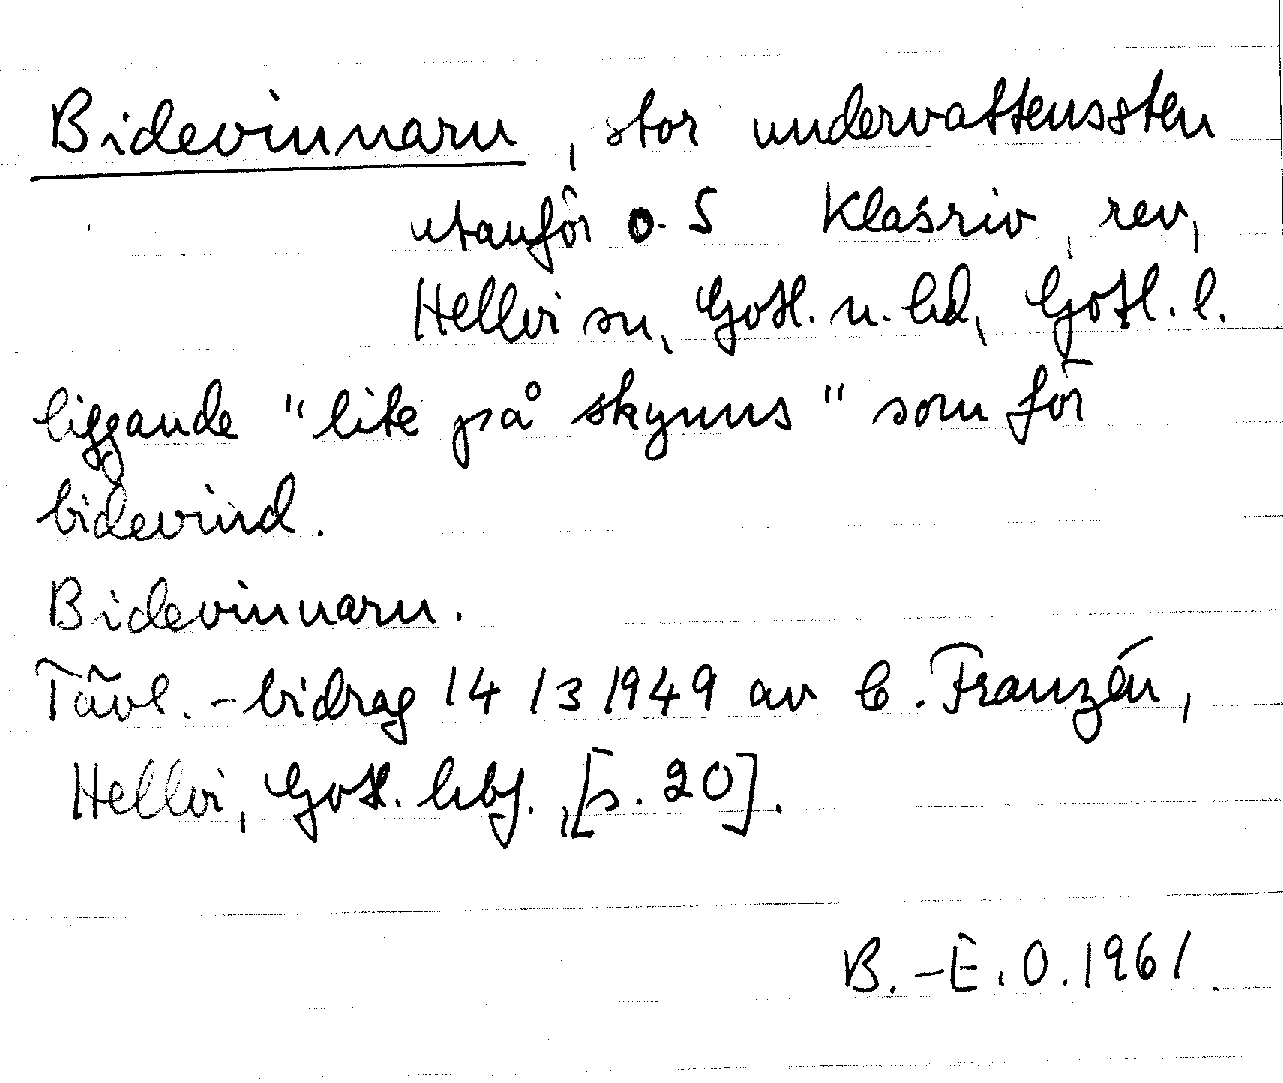 Bidevinnarn, stor undervattenssten
utanför o. S Klasriv, rev,
Hellvi sn, Gotl. n. hd, Gotl. l.
liggande "lite på skynns" som för
bidevind.
Bidevinnarn.
Tävl.-bidrag 14/3 1949 av C. Franzén,
Hellvi, Gotl. hbf., [s. 20].
B.-E. O. 1961